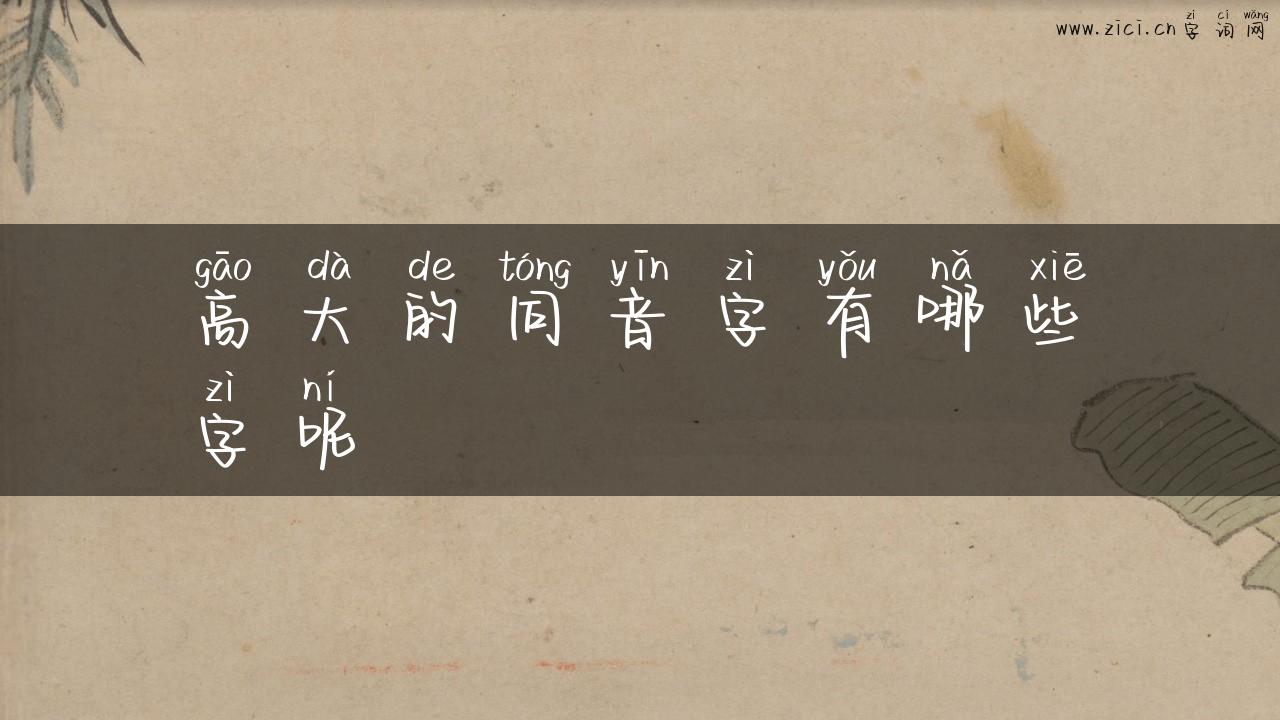 zì cí wǎng
www.zici.cn 字词网
gāo dà de tóng yīn zì yǒu nǎ xiē
高大的同音字有哪些
zì ní
字呢